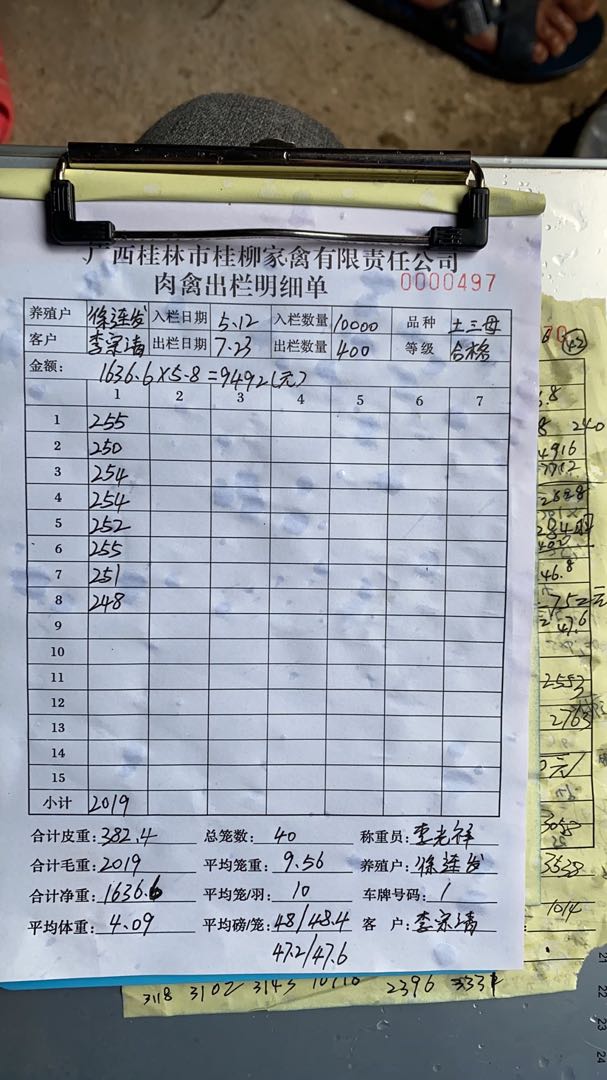 广西桂林市桂柳家禽有限责任公司
肉禽出栏明细单 0000497
养殖户 徐连发 入栏日期 5.12 入栏数量 10000 品种 土三母
客户 李宗清 出栏日期 7.23 出栏数量 400 等级 合格
金额: 1636.6×5.8=9492(元)
1 2 3 4 5 6 7
1 255
2 250
3 254
4 254
5 252
6 255
7 251
8 248
9
10
11
12
13
14
15
小计 2019
合计皮重: 382.4 总笼数: 40 称重员: 李光祥
合计毛重: 2019 平均笼重: 9.56 养殖户: 徐连发
合计净重: 1636.6 平均笼/羽: 10 车牌号码: 1
平均体重: 4.09 平均磅/笼: 48/48.4 客 户: 李宗清
47.2/47.6
240
4916
46.8
47.6
2553
2763
3538
1014
3118 3102 3143 10710 2396 3331
21
22
23
24